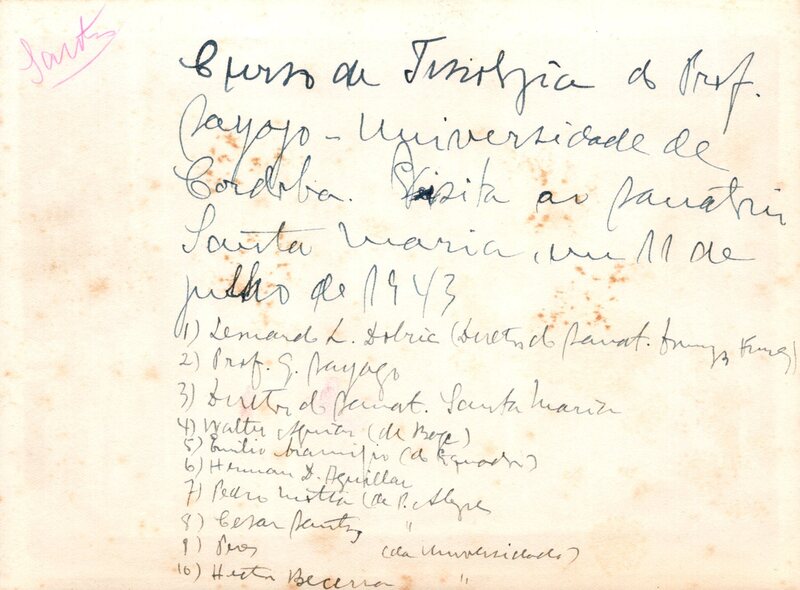 Santos
Curso de Tisiologia do Prof.
Sayago - Universidade de
Cordoba. Visita ao Sanatorio
Santa Maria, em 11 de
julho de 1943
1) Leonardo L. (Diretor do Sanat. Funes)
2) Prof. G. Sayago
3) Diretor do Sanat. Santa Maria
4) Walter Aguiar (de Bagé)
5) Emilio (do Equador)
6) Herman D. Aguillar
7) Pedro (de P. Alegre)
8) Cesar Santos "
9) (da Universidade)
10) Hector Becerra "